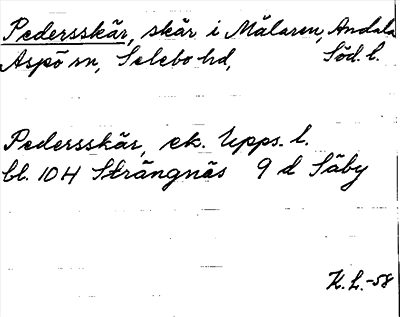 Pedersskär, skär i Mälaren, Andala
Aspö sn, Selebo hd, Söd. l.
Pedersskär, ek. Upps. l.
bl. 104 Strängnäs 9 d Säby
K. L. -58